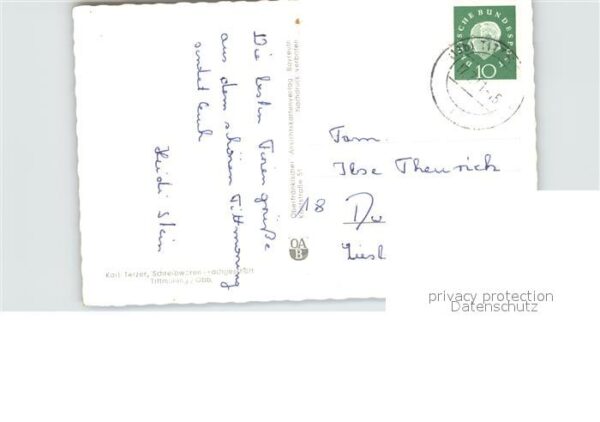 Die besten Feriengrüße
aus dem schönen Tittmoning
sendet Euch
Heidi Stein
Karl Terzer, Schreibwaren-Fachgeschäft
Tittmoning, Obb.
Oberfränkischer Ansichtskartenverlag Bayreuth
Nachdruck verboten
OA
B
DEUTSCHE BUNDESPOST
10
Fam.
Ilse Theurich
18 Du
Liesl
privacy protection
Datenschutz